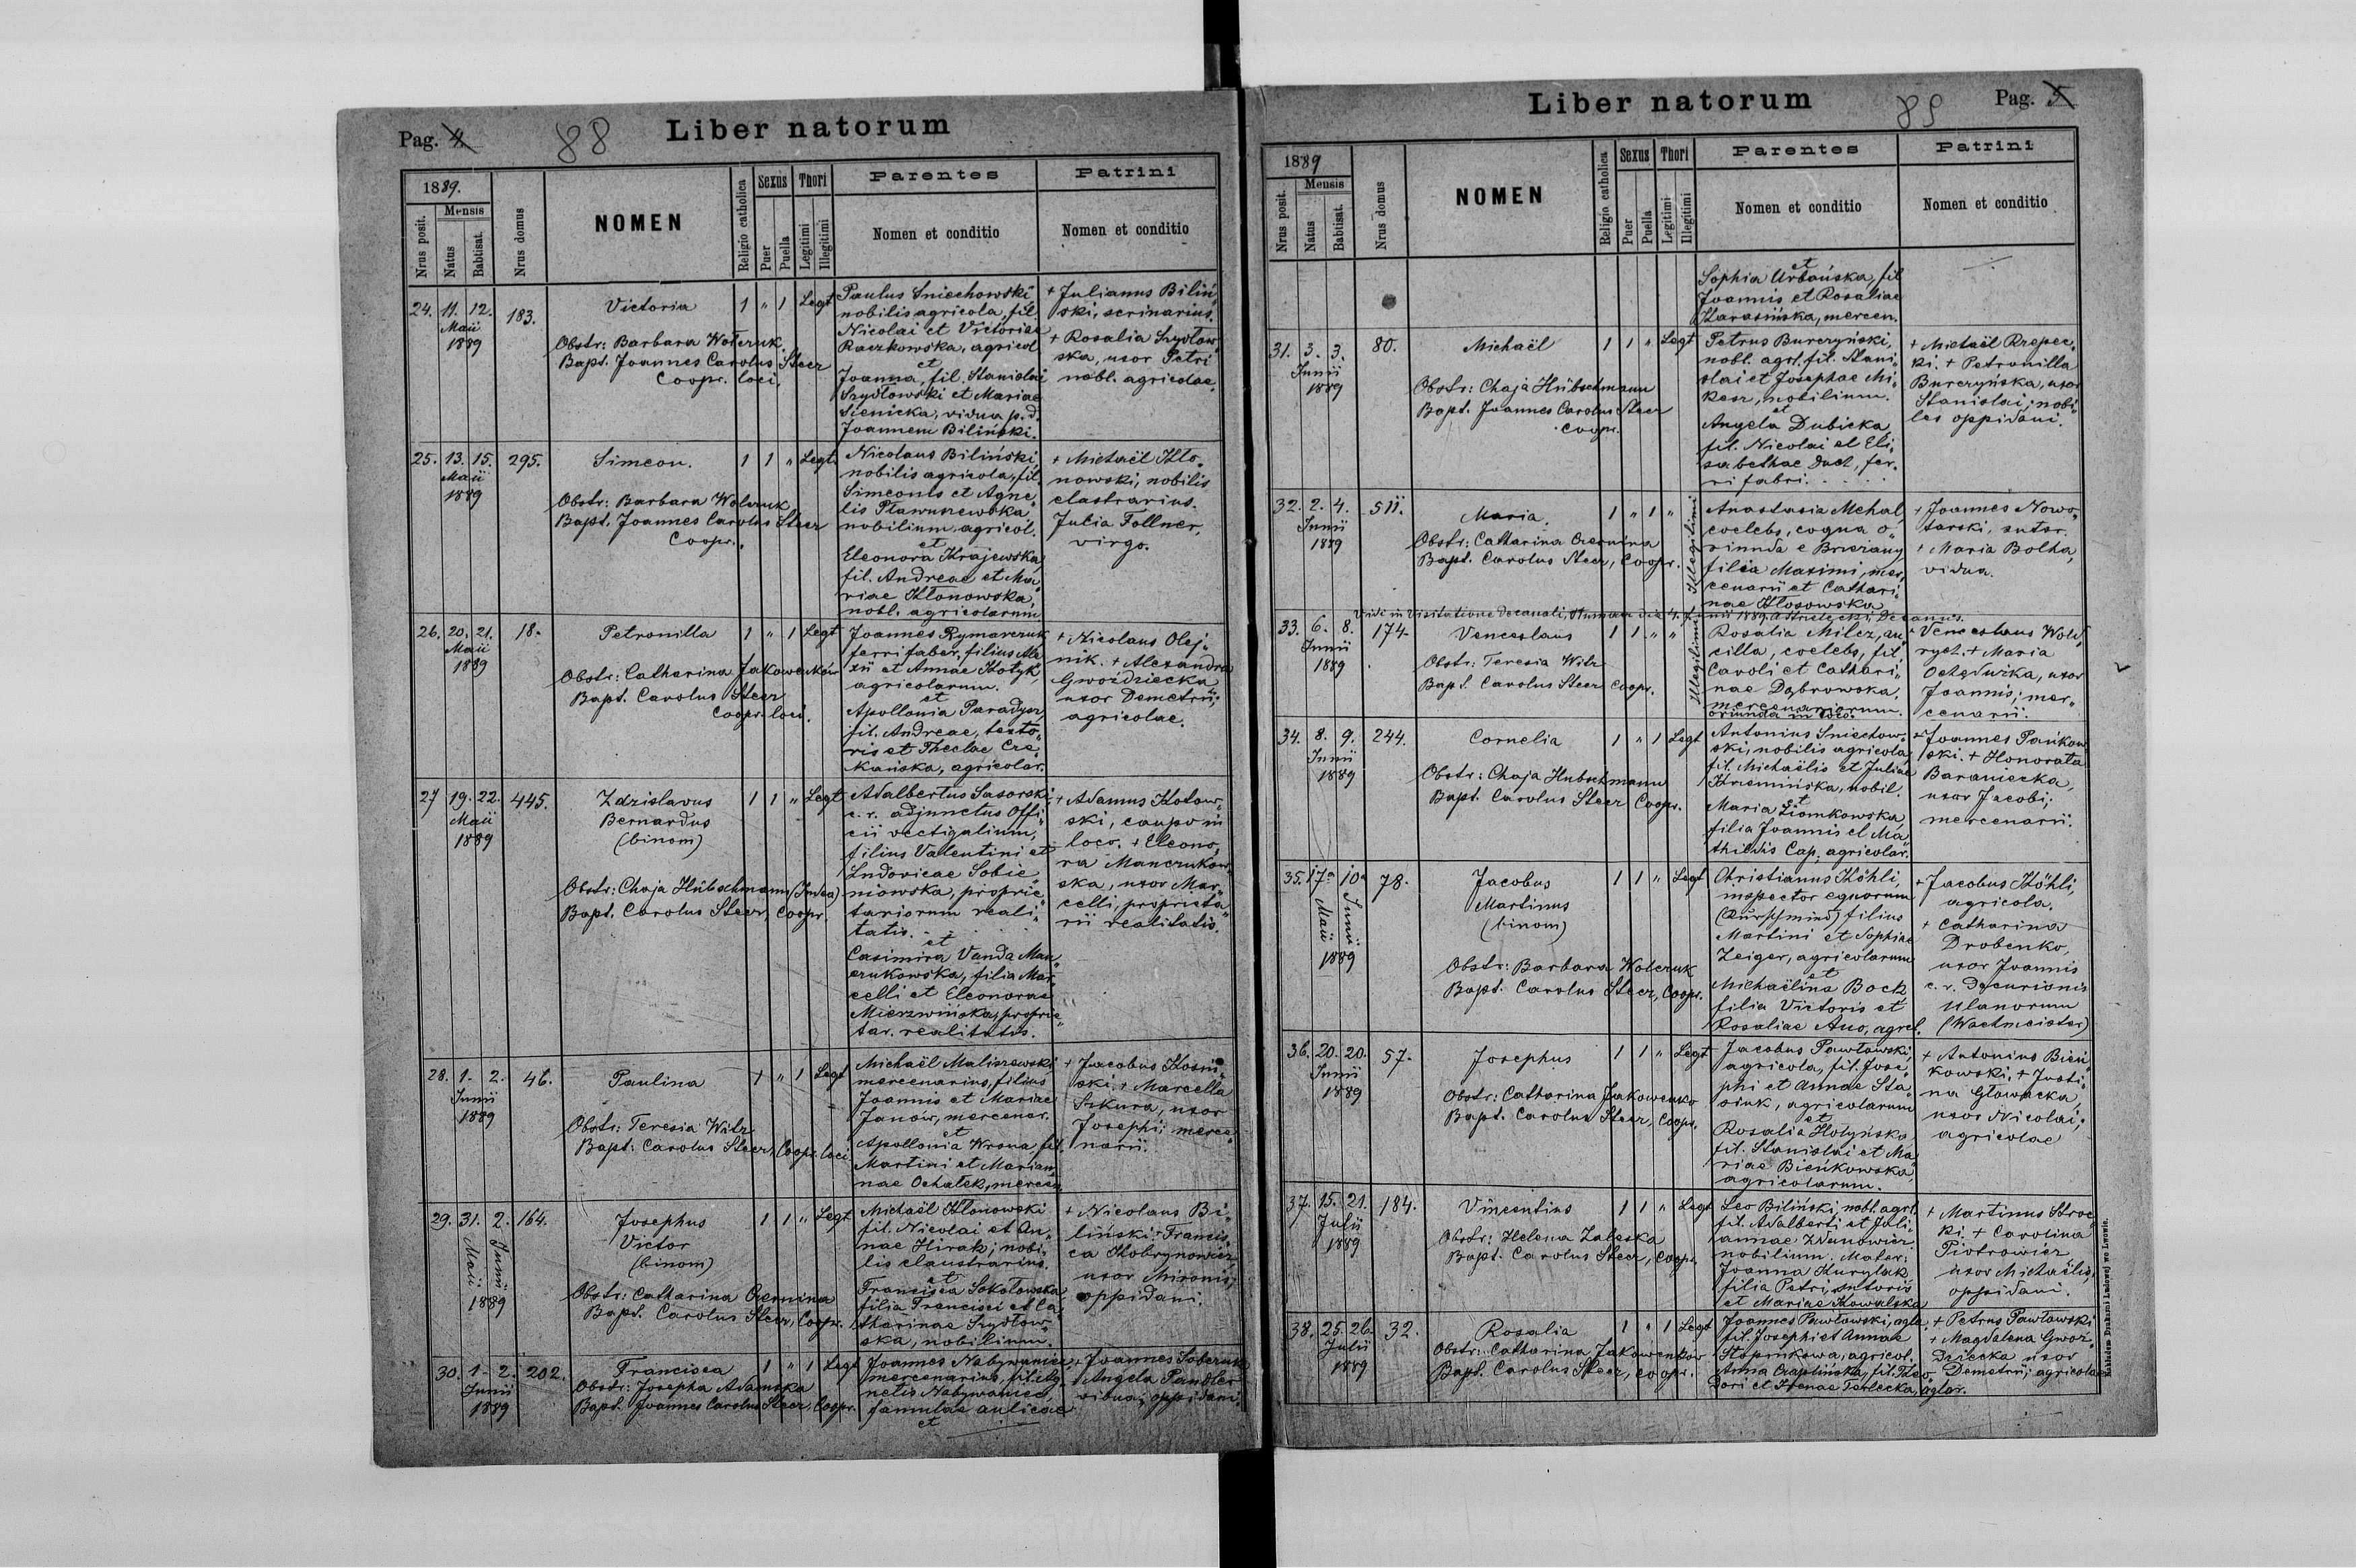 Pag. 4
88
Liber natorum
1889.
Nrus posit.
Mensis
Natus
Babtisat.
Nrus domus
NOMEN
Religio catholica
Sexus
Puer
Puella
Thori
Legitimi
Illegitimi
Parentes
Nomen et conditio
Patrini
Nomen et conditio
24. 11. 12. Maii 1889 183.
Victoria
1 " 1 Legt
Obstr: Barbara Wołczuk
Bapt. Joannes Carolus Steer
Coopr. loci.
Paulus Sniechowski
nobilis agricola, fil.
Nicolai et Victoriae
Raczkowska, agricol.
et
Joanna, fil. Stanislai
Szydłowski et Mariae
Sienicka, vidua p. d.
Joannem Biliński.
+ Julianus Biliń"
ski, scrinarius.
+ Rosalia Szydłow"
ska, uxor Petri
nobl. agricolae.
25. 13. 15. Maii 1889 295.
Simeon.
1 1 " Legt.
Obstr: Barbara Wolczuk
Bapt. Joannes Carolus Steer
Coopr.
Nicolaus Biliński
nobilis agricola, fil.
Simeonis et Agne"
nobilium agricol.
et
Eleonora Krajewska,
fil. Andreae et Ma"
riae Kłonowska,
nobl. agricolarum
+ Michaël Kło"
nowski, nobilis
clastrarius.
Julia Follner,
virgo.
26. 20. 21. Maii 1889 18.
Petronilla
1 " 1 Legt
Obstr: Catharina Jakowenków
Bapt. Carolus Steer
Coopr. loci.
Joannes Rymarczuk
ferrifaber, filius Ale"
xii et Annae Kotyk
agricolarum.
et
Apollonia Paradysz,
fil. Andreae, texto"
ris et Theclae Cze"
kańska, agricolar.
+ Nicolaus Olej"
nik. + Alexandra
Gwoździecka
uxor Demetrii;
agricolae.
27 19. 22. Maii 1889 445.
Zdzislavus
Bernardus
(binom)
1 1 " Legt
Obstr: Chaja Hübschmann (Judea)
Bapt. Carolus Steer, Coopr.
Adalbertus Sasorski,
c. r. adjunctus Offi"
cii vectigalium,
filius Valentini et
Ludovicae Sobie"
niowska, proprie"
tariorum reali"
tatis.
et
Casimira Vanda Man"
czukowska, filia Mar"
celli et Eleonorae
Mierzwińska, proprie"
tar. realitatis.
+ Adamus Kotow"
ski, caupo in
loco. + Eleono"
ra Manczukow"
ska, uxor Mar"
celli, proprieta"
rii realitatis.
28. 1. 2. Junii 1889 46.
Paulina
1 " 1 Legt
Obstr: Teresia Witz
Bapt: Carolus Steer, Coopr. loci
Michaël Maliszewski
mercenarius, filius
Joannis et Mariae
Janów, mercenar.
et
Apollonia Wrona, fil.
Martini et Marian"
nae Ochalek, mercen.
+ Jacobus Kosiń"
ski. + Marcella
Szkura, uxor
Josephi; merce"
narii.
29. 31. Maii 2. Junii 1889 164.
Josephus
Victor
(binom)
1 1 " Legt
Obstr: Catharina Czernina
Bapt. Carolus Steer, Coopr.
Michaël Kłonowski
fil. Nicolai et An"
nae Hirak; nobi"
lis claustrarius.
et
Francisca Sokołowska
filia Francisci et Ca"
tharinae Szydłow"
ska, nobilium.
+ Nicolaus Bi"
liński + Francis"
ca Kobrynowicz
uxor Mironis;
oppidani.
30. 1. 2. Junii 1889 202.
Francisca
1 " 1 Legt
Obstr: Josepha Adamska
Bapt. Joannes Carolus Steer, Coopr.
Joannes Nabywaniec,
mercenarius, fil. Ag"
netis Nabywaniec,
famulae aulicae
et
+ Joannes Soberuk
+ Angela Pandler
vidua; oppidani.
Liber natorum
89
Pag. 5
1889
Nrus posit.
Mensis
Natus
Babtisat.
Nrus domus
NOMEN
Religio catholica
Sexus
Puer
Puella
Thori
Legitimi
Illegitimi
Parentes
Nomen et conditio
Patrini
Nomen et conditio
et
Sophia Urbańska, fil
Joannis et Rosaliae
Karasińska, mercen.
31. 3. 3. Junii 1889 80.
Michaël
1 1 " Legt
Obstr: Chaja Hübschmann
Bapt. Joannes Carolus Steer
Coopr.
Petrus Burczyński,
nobl. agrl. fil. Stani"
slai et Josephae Mi"
kesz, nobilium.
et
Angela Dubicka,
fil. Nicolai et Eli"
sabethae Duch, fer"
rifabri.
+ Michaël Rzepec"
ki. + Petronilla
Burczyńska, uxor
Stanislai; nobi"
les oppidani.
32. 2. 4. Junii 1889 511.
Maria.
1 " 1 "
Illegitimi
Obstr: Catharina Czernina
Bapt. Carolus Steer, Coopr.
Anastasia Mehal,
coelebs, coqua o"
riunda e Brzeżany,
filia Maximi, mer"
cenarii et Cathari"
nae Kłosowska
+ Joannes Nowo"
tarski, sutor.
+ Maria Bolha,
vidua.
Vidi in Visitatione Decanali, Humnisca die 4. Junii 1889. A Strzelecki, Decanus.
33. 6. 8. Junii 1889 174.
Venceslaus
1 1 " "
Illegitimi
Obstr: Teresia Witz
Bapt. Carolus Steer Coopr.
Rosalia Milcz, an"
cilla, coelebs, fil.
Caroli et Cathari"
nae Dąbrowska,
mercenariorum.
oriunda in loco.
+ Venceslaus Wold"
rych. + Maria
Ochęduzka, uxor
Joannis; mer"
cenarii.
34. 8. 9. Junii 1889 244.
Cornelia
1 " 1 Legt
Obstr: Chaja Hubschmann
Bapt. Carolus Steer Coopr.
Antonius Sniechow"
ski, nobilis agricola,
fil. Michaëlis et Juliae
Krzemińska, nobil.
et
Maria Ziomkowska,
filia Joannis et Ma"
thildis Cap, agricolar.
+ Joannes Pańkow"
ski. + Honorata
Baraniecka,
uxor Jacobi;
mercenarii.
35. 17a Maii 10a Junii 1889 78.
Jacobus
Martinus
(binom)
1 1 " Legt
Obstr: Barbara Wolczuk
Bapt. Carolus Steer, Coopr.
Christianus Köhli,
inspector equorum
(Kurschmied) filius
Martini et Sophiae
Zeiger, agricolarum
et
Michaëlina Bock
filia Victoris et
Rosaliae Auo, agrcl.
+ Jacobus Köhli,
agricola.
+ Catharina
Drobenko,
uxor Joannis
c. r. Decurionis
Ulanorum
(Wachmeister)
36. 20. 20. Junii 1889 57.
Josephus
1 1 " Legt
Obstr: Catharina Jakowenko
Bapt. Carolus Steer, Coopr.
Jacobus Pawłowski,
agricola, fil. Jose"
phi et Annae Sta"
siuk, agricolarum
et
Rosalia Hołyńska,
fil. Stanislai et Ma"
riae Bieńkowska,
agricolarum.
+ Antonius Bień"
kowski. + Justi"
na Głowacka,
uxor Nicolai;
agricolae
37. 15. 21. Julii 1889 184.
Vincentius
1 1 " Legt
Obstr: Helena Zaleska
Bapt. Carolus Steer, Coopr.
Leo Biliński, nobl. agrl.
fil. Adalberti et Juli"
annae Zdunowicz
nobilium. Mater:
Joanna Kurylak
filia Petri, sutoris
et Mariae Kowalska
+ Martinus Stroc"
ki. + Carolina
Piotrowicz
uxor Michaëlis,
oppidani.
38. 25. 26. Julii 1889 32.
Rosalia
1 " 1 Legt
Obstr: Catharina Jakowenków
Bapt. Carolus Steer, Coopr.
Joannes Pawłowski, agla.
fil. Josephi et Annae
agricol.
Anna Czaplińska, fil. Theo"
dori et Irenae Terlecka, aglar.
+ Petrus Pawłowski
+ Magdalena Gwoź"
dziecka uxor
Demetrii; agricolae
Nakładem Drukarni Ludowej we Lwowie.